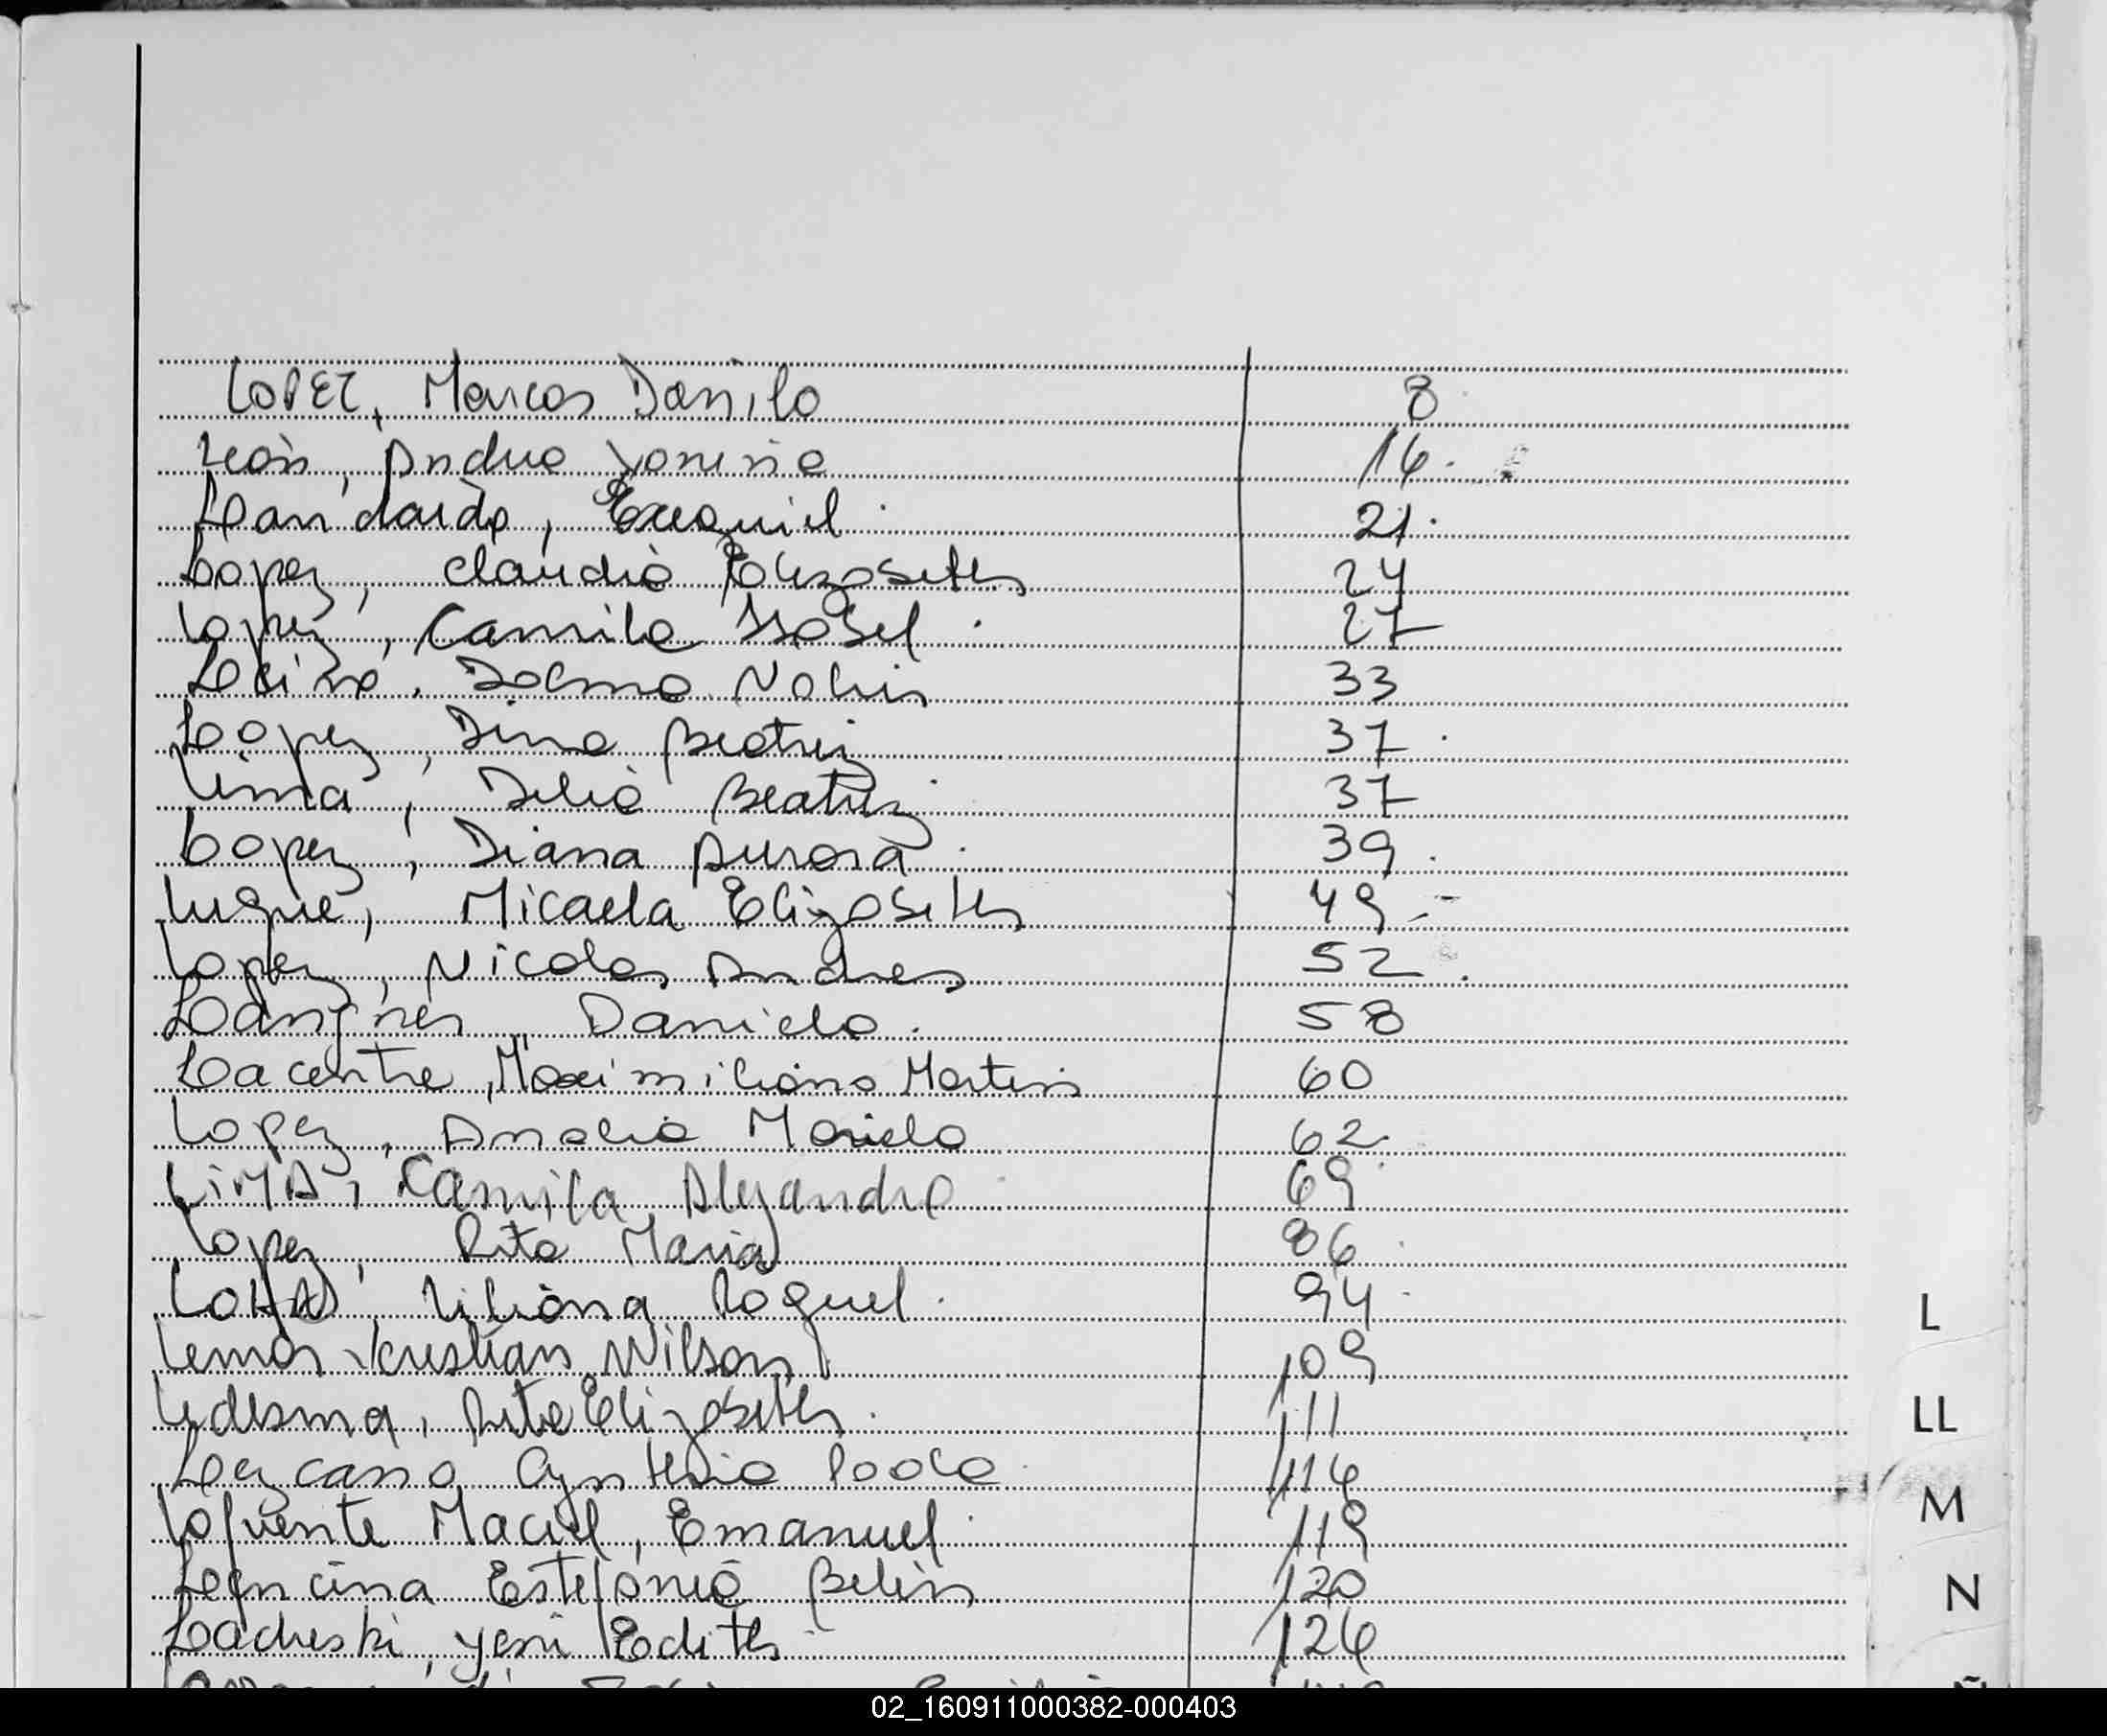 LOPEZ, Marcos Danilo 8
León, Andrea Yanina 16.
Landaida, Exequiel 21.
Lopez, Claudia Elizabeth 24
Lopez, Camila Isabel 27
Dalma 33
Lopez, Dina Beatriz 37
Lima, Delia Beatriz 37
Lopez, Diana Aurora 39.
Luque, Micaela Elizabeth 49
Lopez, Nicolas Andres 52.
Daniela. 58
Lacentre, Maximiliano Martin 60
Lopez, Analia Mariela 62.
LiMA, Camila Alejandra 69
Lopez, Rita Maria 86
Liliana Raquel. 94
Lemos Kristian Wilson 109
Ledesma, Rita Elizabeth. 111
Lezcano Cynthia Paola 116
Lafuente Maciel, Emanuel 119
Estefania Belén 120
Lacheski, Yeni Edith 126
L
LL
M
N
Ñ
02_160911000382-000403